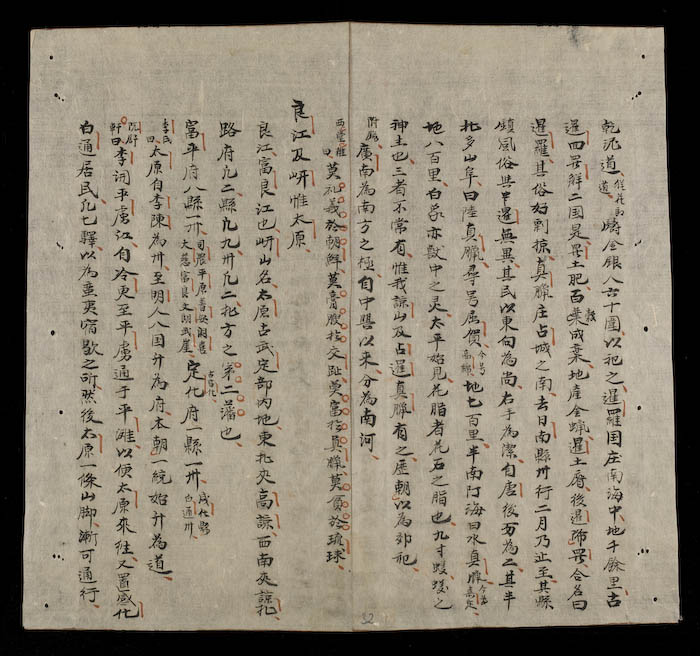 乾沉道道嶹金銀八六十圍以祀之暹羅国庄南海中地千餘里古
二国是土肥百穀地產金蠟暹土後暹合名曰
暹羅其俗好剽掠真臘庄占城之南去日南縣卅行二月乃止至其縣
鎮風俗與中暹無異其民以東向為尚右手為潔自唐後分為二其半
北多山阜曰陸真臘尋号屈賀今号高綿地七百里半南汀海曰水真臘今為嘉定
地八百里白象亦獸中之灵太平始見花脂者花石之脂也九寸之
神主也三者不常有惟我諒山及占暹真臘有之歷朝以為郊祀
廣南為南方之極自中興以来分為南河
曰莫礼義於朝鮮莫膏腴於交趾莫富於真臘莫貧於琉球
良江及岍惟太原
良江富良江也岍山名太原古武定部内地東北夾高諒西南夾諒北
路府凡二縣凡九卅凡二北方之第二藩也
富平府八縣一卅司農平原普安洞喜大慈富良文朗武崖定化府一縣一卅感化縣白通卅
李氏曰太原自李陳為卅至明人入國升為府本朝一統始升為道
阮舒軒曰李詞平虜江自冷更至平虜通于平灘以便太原來徃又置感化
白通居民凡七驛以為蛮夷宿歇之所然後太原一條山脚漸可通行
32